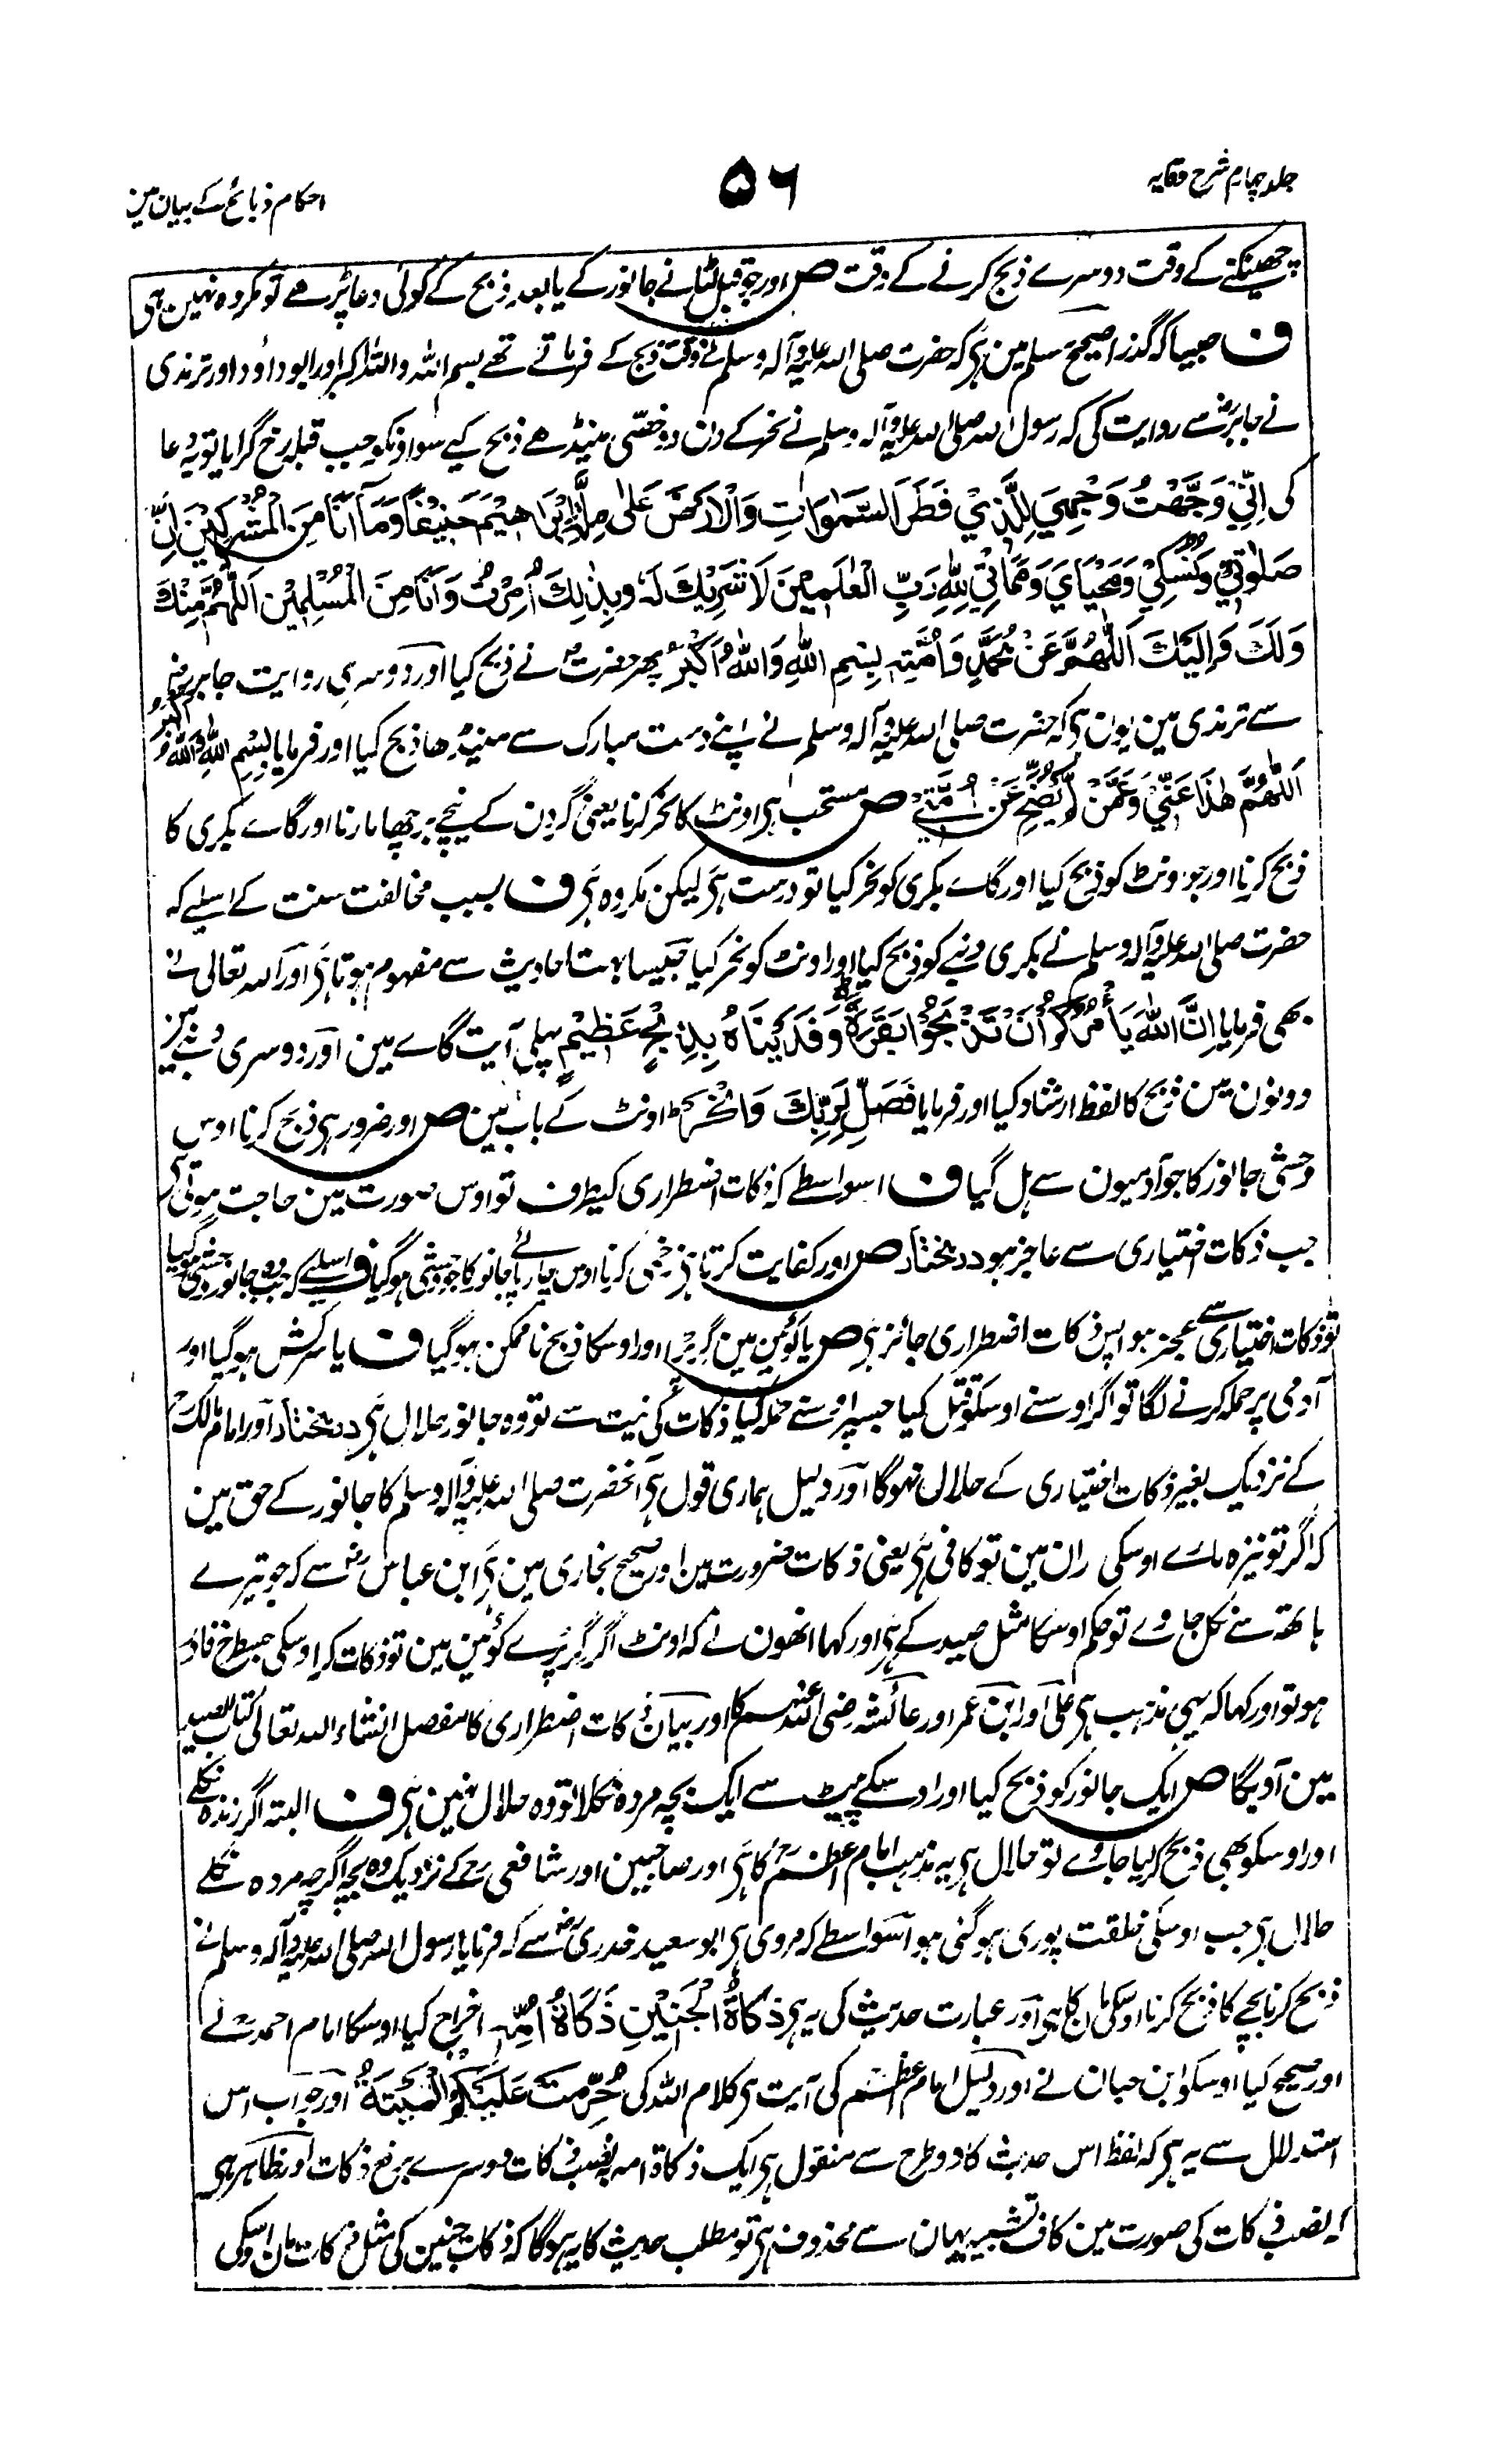 جلد چہارم شرح وقایہ
۵۶
احکام ذبائح کے بیان مین
چھینکنے کے وقت دوسرے ذبح کرنے کے وقت ص اور جو قبل لٹانے جانور کے یا بعد ذبح کے کوئی دعا پڑھے تو مکروہ نہین ہی
ف جیسا کہ گذرا صحیح مسلم مین ہی کہ حضرت صلی اللہ علیہ وآلہ وسلم وقت ذبح کے فرماتے تھے بسم اللہ واللہ اکبر اور ابو داؤد اور ترمذی
نے جابرؓ سے روایت کی کہ رسول اللہ صلی اللہ علیہ وآلہ وسلم نے نحر کے دن دو خصی مینڈھے ذبح کیے سو اونکو جب قبلہ رخ گرایا تو یہ دعا
کی اِنِّیْ وَجَّهْتُ وَجْهِیَ لِلَّذِیْ فَطَرَ السَّمٰوَاتِ وَالْاَرْضَ عَلٰی مِلَّةِ اِبْرَاهِیْمَ حَنِیْفًا وَّمَا اَنَا مِنَ الْمُشْرِکِیْنَ اِنَّ
صَلٰوتِیْ وَنُسُکِیْ وَمَحْیَایَ وَمَمَاتِیْ لِلّٰهِ رَبِّ الْعٰلَمِیْنَ لَا شَرِیْكَ لَهٗ وَبِذٰلِكَ اُمِرْتُ وَاَنَا مِنَ الْمُسْلِمِیْنَ اَللّٰهُمَّ مِنْكَ
وَلَكَ وَاِلَیْكَ اَللّٰهُمَّ عَنْ مُحَمَّدٍ وَاُمَّتِهٖ بِسْمِ اللّٰهِ وَاللّٰهُ اَکْبَرُ پھر حضرتؐ نے ذبح کیا اور دوسری روایت جابرؓ
سے ترمذی مین یون ہی کہ حضرت صلی اللہ علیہ وآلہ وسلم نے اپنے دست مبارک سے مینڈھا ذبح کیا اور فرمایا بِسْمِ اللّٰهِ وَاللّٰهُ اَکْبَرُ
اَللّٰهُمَّ هٰذَا عَنِّیْ وَعَمَّنْ لَّمْ یُضَحِّ عَنْ اُمَّتِیْ ص مستحب ہی اونٹ کا نحر کرنا یعنی گردن کے نیچے برچھا مارنا اور گاے بکری کا
ذبح کرنا اور جو اونٹ کو ذبح کیا اور گاے بکری کو نحر کیا تو درست ہی لیکن مکروہ ہی ف بسبب مخالفت سنت کے اسلیے کہ
حضرت صلی اللہ علیہ وآلہ وسلم نے بکری دنبے کو ذبح کیا اور اونٹ کو نحر کیا جیسا بہت احادیث سے مفہوم ہوتا ہی اور اللہ تعالی نے
بھی فرمایا اِنَّ اللّٰهَ یَأْمُرُکُمْ اَنْ تَذْبَحُوْا بَقَرَةً وَفَدَیْنَاهُ بِذِبْحٍ عَظِیْمٍ پہلی آیت گاے مین اور دوسری دنبے مین
دونون مین ذبح کا لفظ ارشاد کیا اور فرمایا فَصَلِّ لِرَبِّكَ وَانْحَرْ اونٹ کے باب مین ص اور ضرور ہی ذبح کرنا اوس
وحشی جانور کا جو آدمیون سے ہل گیا ف اسواسطے کہ ذکات اضطراری کیطرف تو اوس صورت مین حاجت ہوتی ہی
جب ذکات اختیاری سے عاجز ہو درمختار ص اور کفایت کرتا ہی زخمی کرنا اوس چارپائے جانور کا جو وحشی ہوگیا ف اسلیے کہ جب وہ جانور وحشی ہوگیا
تو ذکات اختیاری سے عجز ہوا پس ذکات اضطراری جائز ہی ص یا کوئین مین گر پڑا اور اوسکا ذبح ناممکن ہوگیا ف یا سرکش ہوگیا اور
آدمی پر حملہ کرنے لگا تو اگر اوسنے اوسکو قتل کیا جسپر اوسنے حملہ کیا ذکات کی نیت سے تو وہ جانور حلال ہی درمختار اور امام مالکؒ
کے نزدیک بغیر ذکات اختیاری کے حلال نہوگا اور دلیل ہماری قول ہی آنحضرت صلی اللہ علیہ وآلہ وسلم کا جانور کے حق مین
کہ اگر تو نیزہ مارے اوسکی ران مین تو کافی ہی یعنی ذکات ضرورت مین اور صحیح بخاری مین ہی ابن عباسؓ سے کہ جو تیرے
ہاتھ سے نکل جاوے تو حکم اوسکا مثل صید کے ہی اور کہا انھون نے کہ اونٹ اگر گر پڑے کوئین مین تو ذکات کر اوسکی جسطرح قادر
ہو تو اور کہا کہ یہی مذہب ہی علی اور ابن عمر اور عائشہ رضی اللہ عنہم کا اور بیان ذکات اضطراری کا مفصل انشاء اللہ تعالی کتاب الصید
مین آویگا ص ایک جانور کو ذبح کیا اور اوسکے پیٹ سے ایک بچہ مردہ نکلا تو وہ حلال نہین ہی ف البتہ اگر زندہ نکلے
اور اوسکو بھی ذبح کرلیا جاوے تو حلال ہی یہ مذہب امام اعظمؒ کا ہی اور صاحبین اور شافعیؒ کے نزدیک وہ بچہ اگرچہ مردہ نکلے
حلال ہی جب اوسکی خلقت پوری ہوگئی ہو اسواسطے کہ مروی ہی ابو سعید خدریؓ سے کہ فرمایا رسول اللہ صلی اللہ علیہ وآلہ وسلم نے
ذبح کرنا بچے کا ذبح کرنا اوسکی مان کا ہی اور عبارت حدیث کی یہ ہی ذَکَاةُ الْجَنِیْنِ ذَکَاةُ اُمِّهٖ اخراج کیا اوسکا امام احمدؒ نے
اور صحیح کیا اوسکو ابن حبان نے اور دلیل امام اعظمؒ کی آیت ہی کلام اللہ کی حُرِّمَتْ عَلَیْکُمُ الْمَیْتَةُ اور جواب اس
استدلال سے یہ ہی کہ لفظ اس حدیث کا دو طرح سے منقول ہی ایک ذکاة امہ بنصب ذکات دوسرے برفع ذکات اور ظاہر ہی
کہ نصب ذکات کی صورت مین کاف تشبیہ یہان سے محذوف ہی تو مطلب حدیث کا یہ ہوگا کہ ذکات جنین کی مثل ذکات مان اوسکی